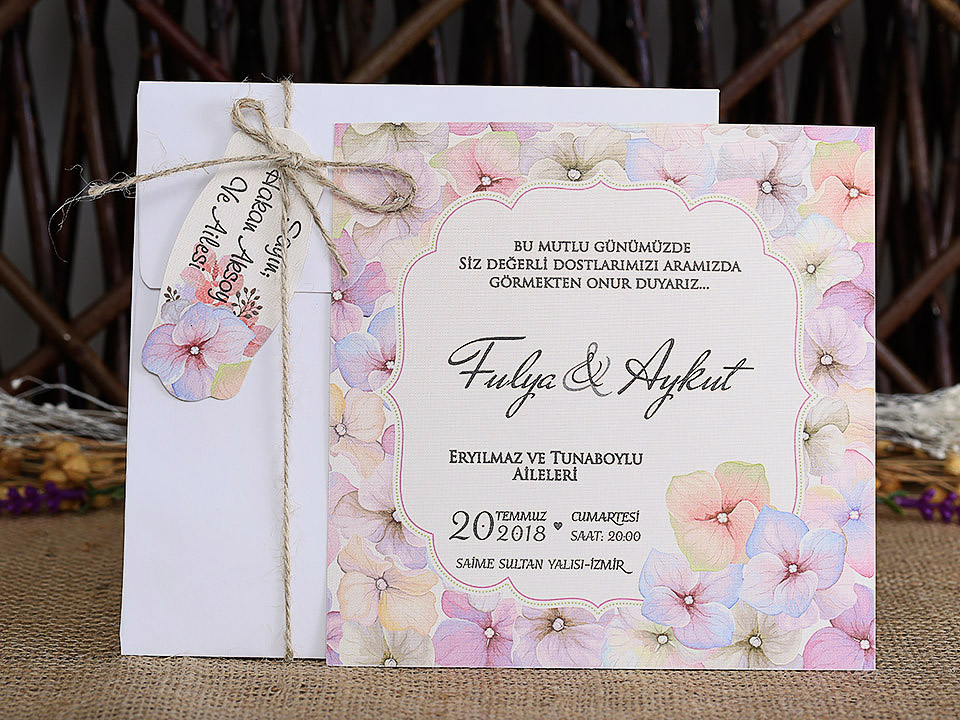 Sayın,
Hakan Aksoy
Ve Ailesi
BU MUTLU GÜNÜMÜZDE
SİZ DEĞERLİ DOSTLARIMIZI ARAMIZDA
GÖRMEKTEN ONUR DUYARIZ...
Fulya & Aykut
ERYILMAZ VE TUNABOYLU
AİLELERİ
20 TEMMUZ 2018 CUMARTESİ
SAAT: 20:00
SAİME SULTAN YALISI-İZMİR